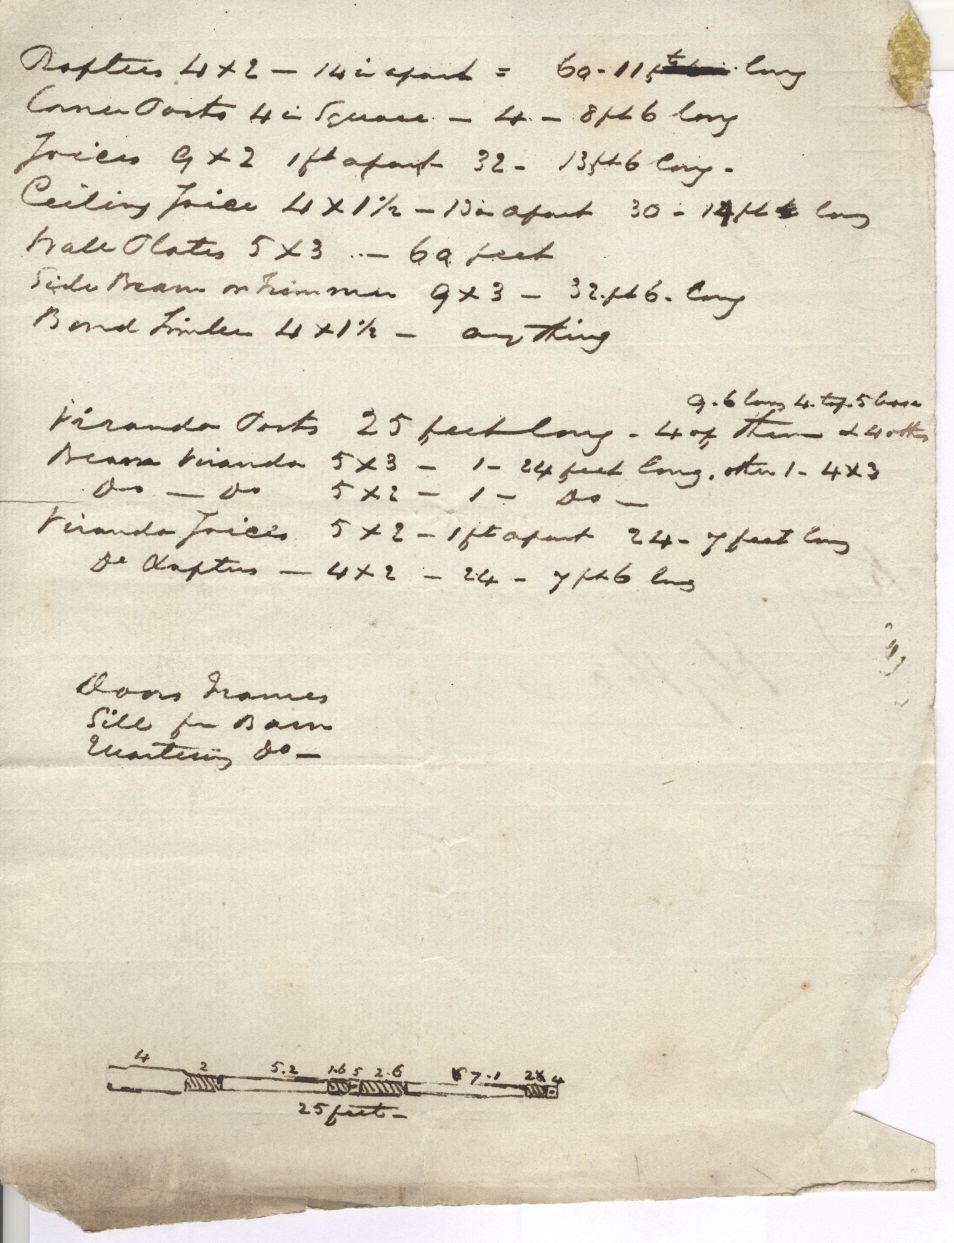 Rafters 4 x 2 – 14 in apart = 60 - 11 ft long
Corner Posts 4 in Square – 4 – 8 ft 6 long
Joices 9 x 2 1 ft apart 32 - 13 ft 6 long -
Ceiling Joice 4 x 1½ – 13 in apart 30 - 14 ft long
Wall Plates 5 x 3 – 60 feet
Side Beam or Trimmer 9 x 3 – 32 ft 6. long
Bond Timber 4 x 1½ – any thing
9.6 long 4. top. 5 base
Viranda Posts 25 feet long - 4 of them & 4 others
Beam Viranda 5 x 3 – 1 - 24 feet long. other 1 - 4 x 3
Do – Do 5 x 2 – 1 – Do –
Viranda Joices 5 x 2 – 1 ft apart 24 - 7 feet long
Do Rafters – 4 x 2 – 24 – 7 ft 6 long
Doors Frames
Sill for Barn
Quartering Do –
4 2 5.2 1.6 5 2.6 7.1 4
25 feet –